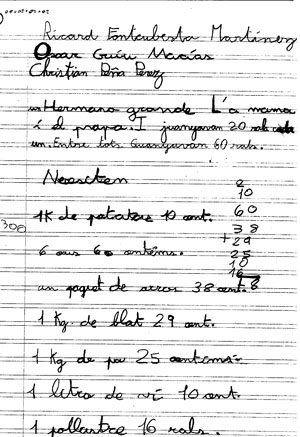 Ricard Fontcuberta Martínez
Oscar Guiu Macías
Christian Peña Perez
un Hermano grande L' mama
i el papa. I juanyavan 20 rals cada
un. Entre tots Guanyavan 60 rals.
Nesesciten
1K de patates 10 cent.
300
6 ous 60 centims.
un paquet de arros 38 cent.
1 Kg. de blat 29 cent.
1 Kg de pa 25 centims
1 litro de vi 10 cent.
1 pollastre 16 rals.
2
10
60
38
+29
25
10
16